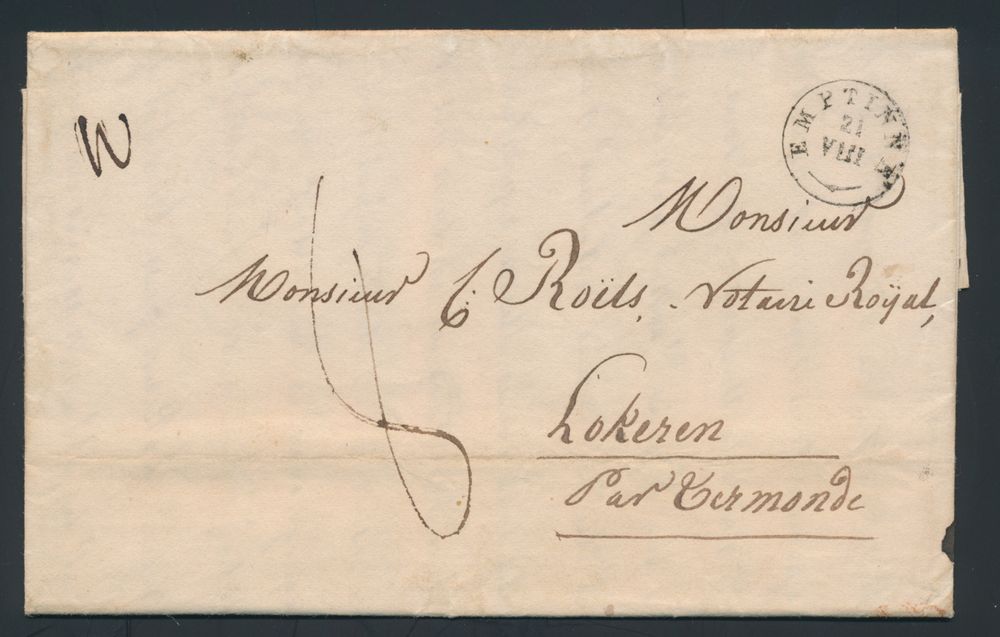 EMPTINNE
21
VIII
Monsieur
Monsieur C. Roïls, Notaire Roÿal,
Lokeren
Par Termonde